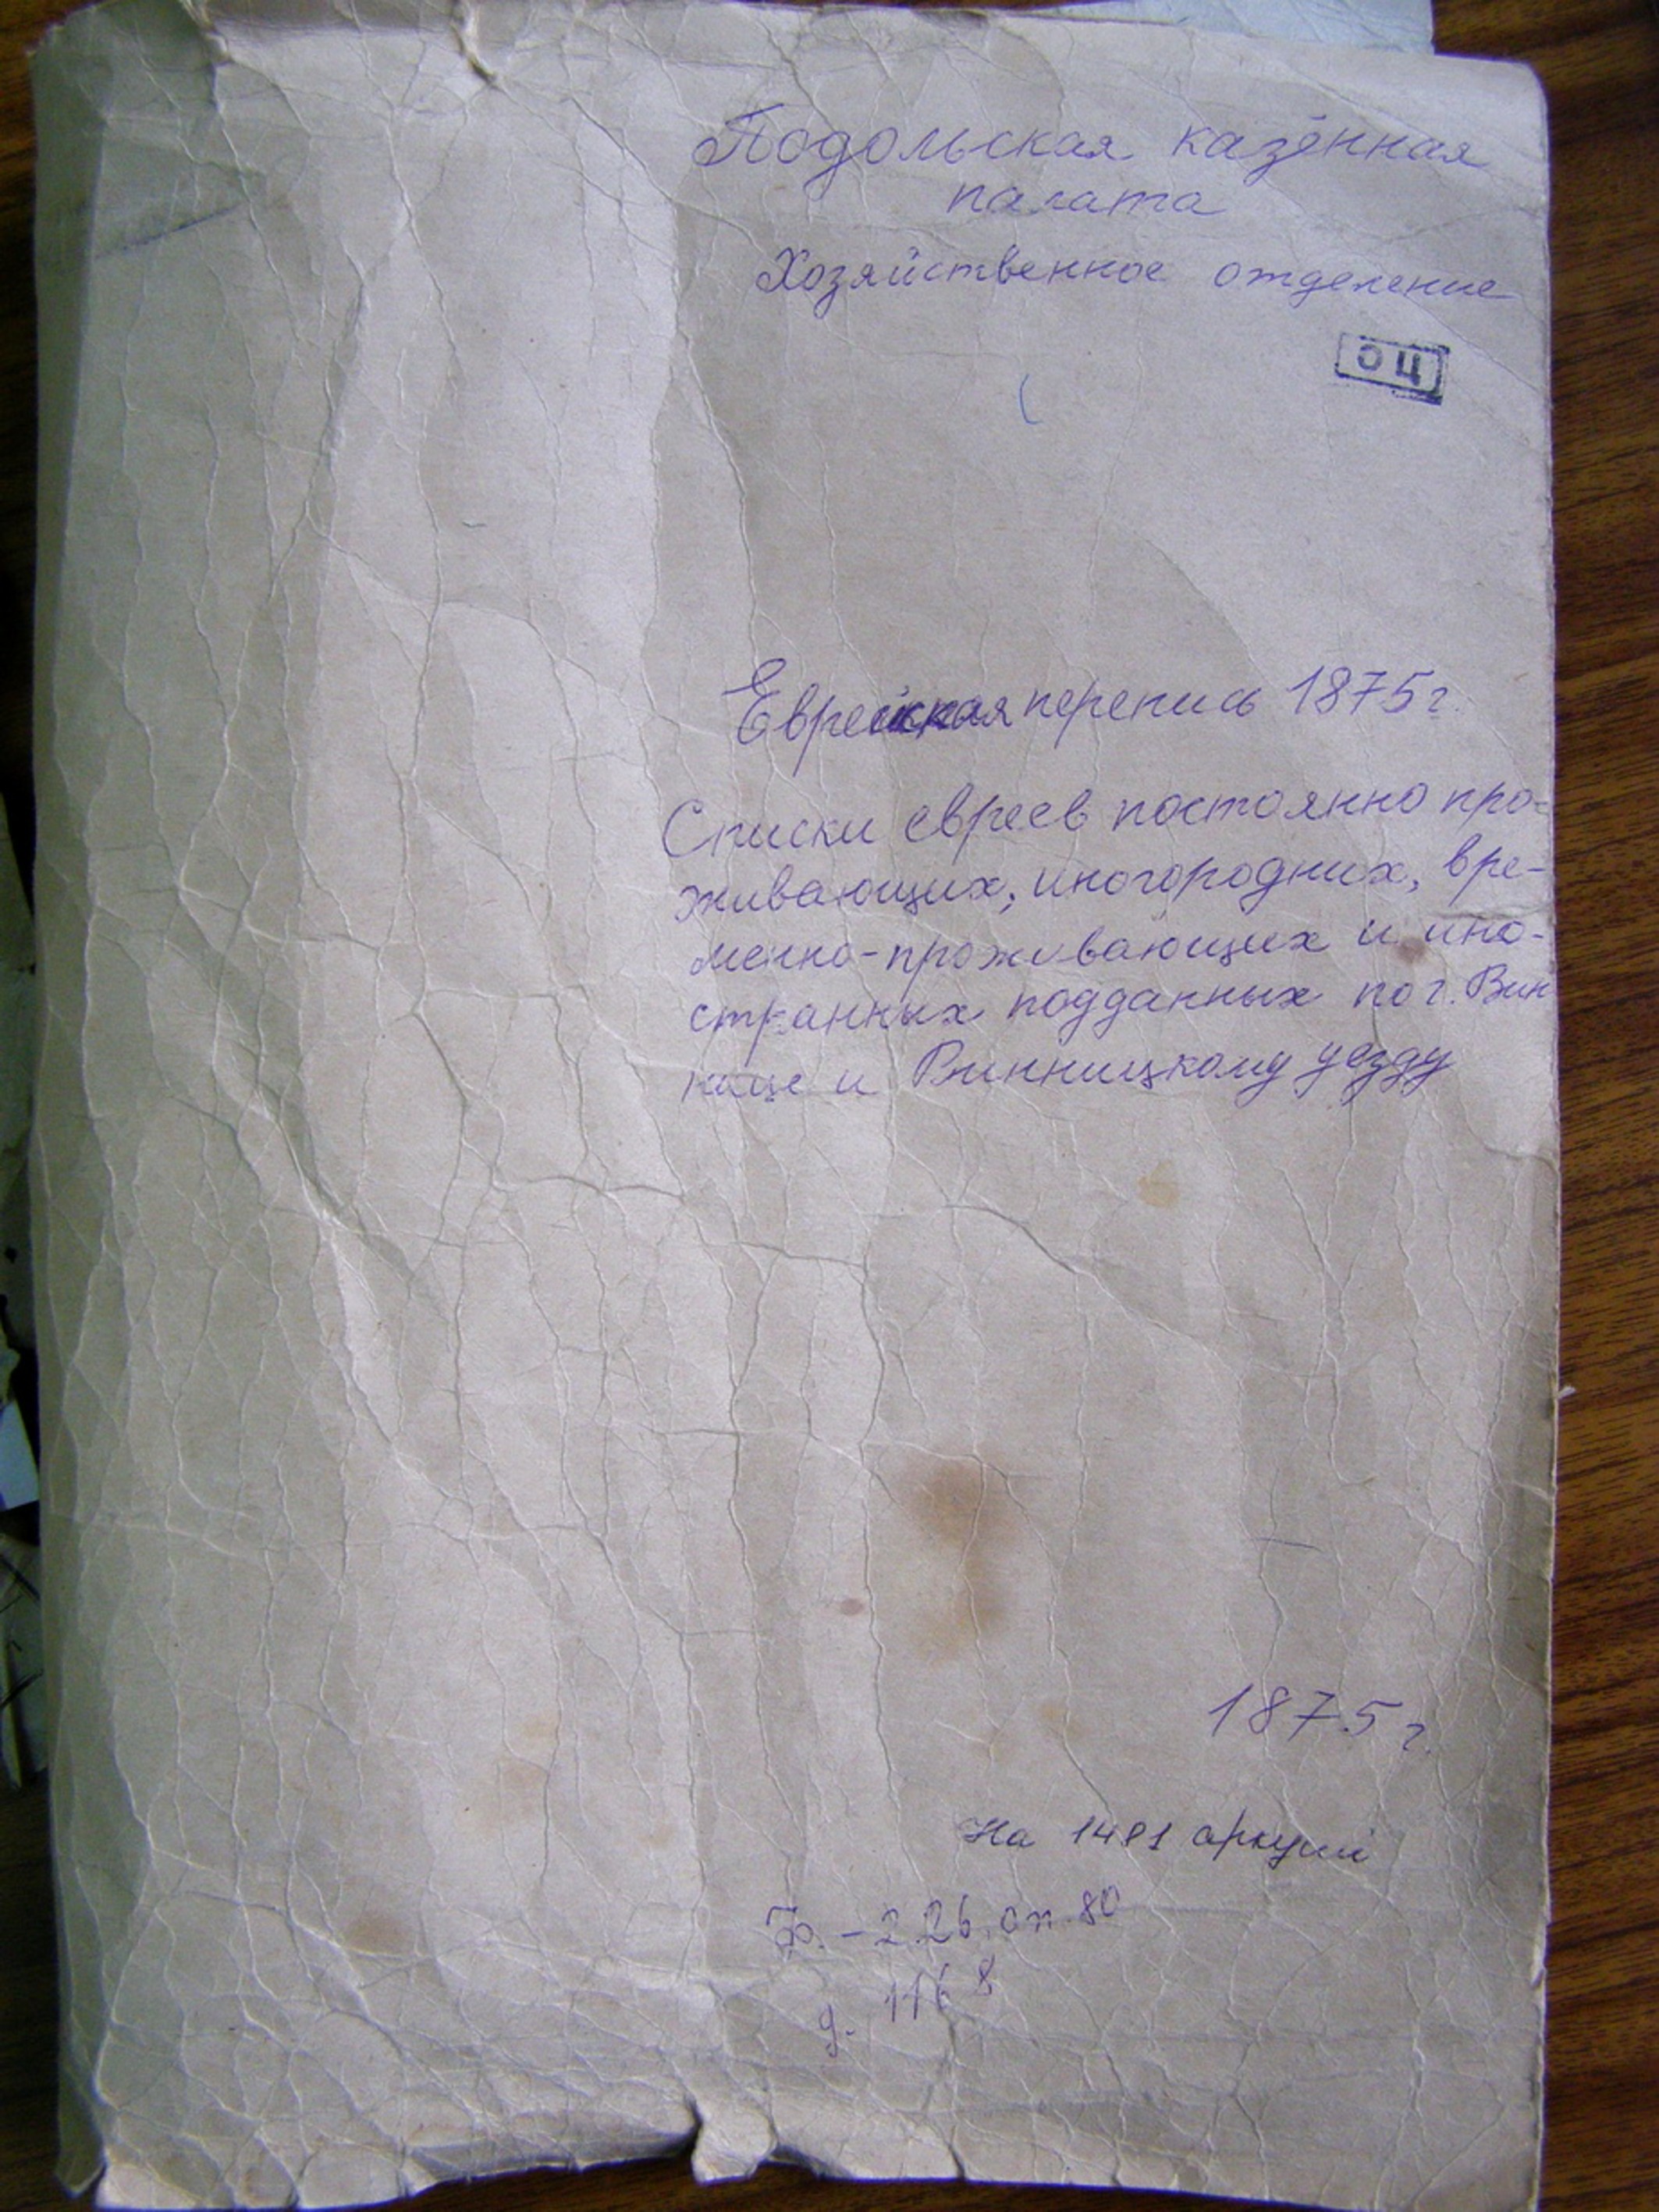 Подольская казённая
палата
Хозяйственное отделение
ОЦ
Еврейская перепись 1875 г.
Списки евреев постоянно про-
живающих, иногородних, вре-
менно-проживающих и ино-
странных подданных по г. Вин
нице и Винницкому уезду
1875 г.
На 1481 аркуші
Ф. - 226, оп. 80
д. 1168